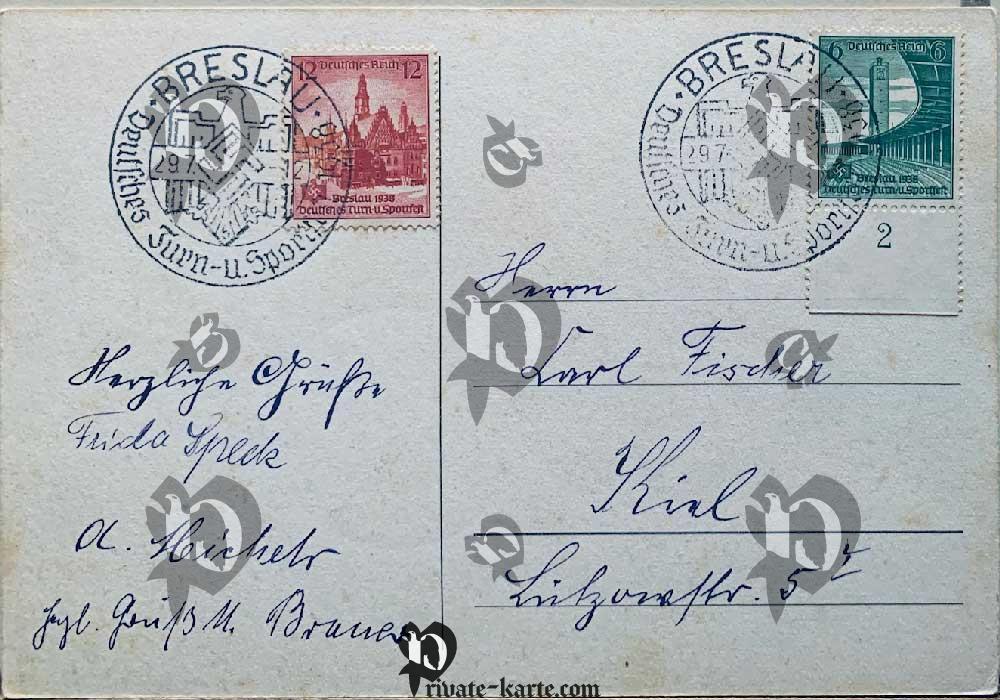 BRESLAU · 1938
29.7.
Deutsches Turn-u. Sport
12 Deutsches Reich 12
Breslau 1938
Deutsches Turn-u. Sportfest
BRESLAU · 1938
29.7.
Deutsches Turn-u. Sport
6 Deutsches Reich 6
Breslau 1938
Deutsches Turn-u. Sportfest
2
Herrn
Karl Fischer
Kiel
Lützowstr. 5
Herzliche Grüße
Frida Speck
A. Michels
hzl. Gruß M. Brauer
Private-karte.com